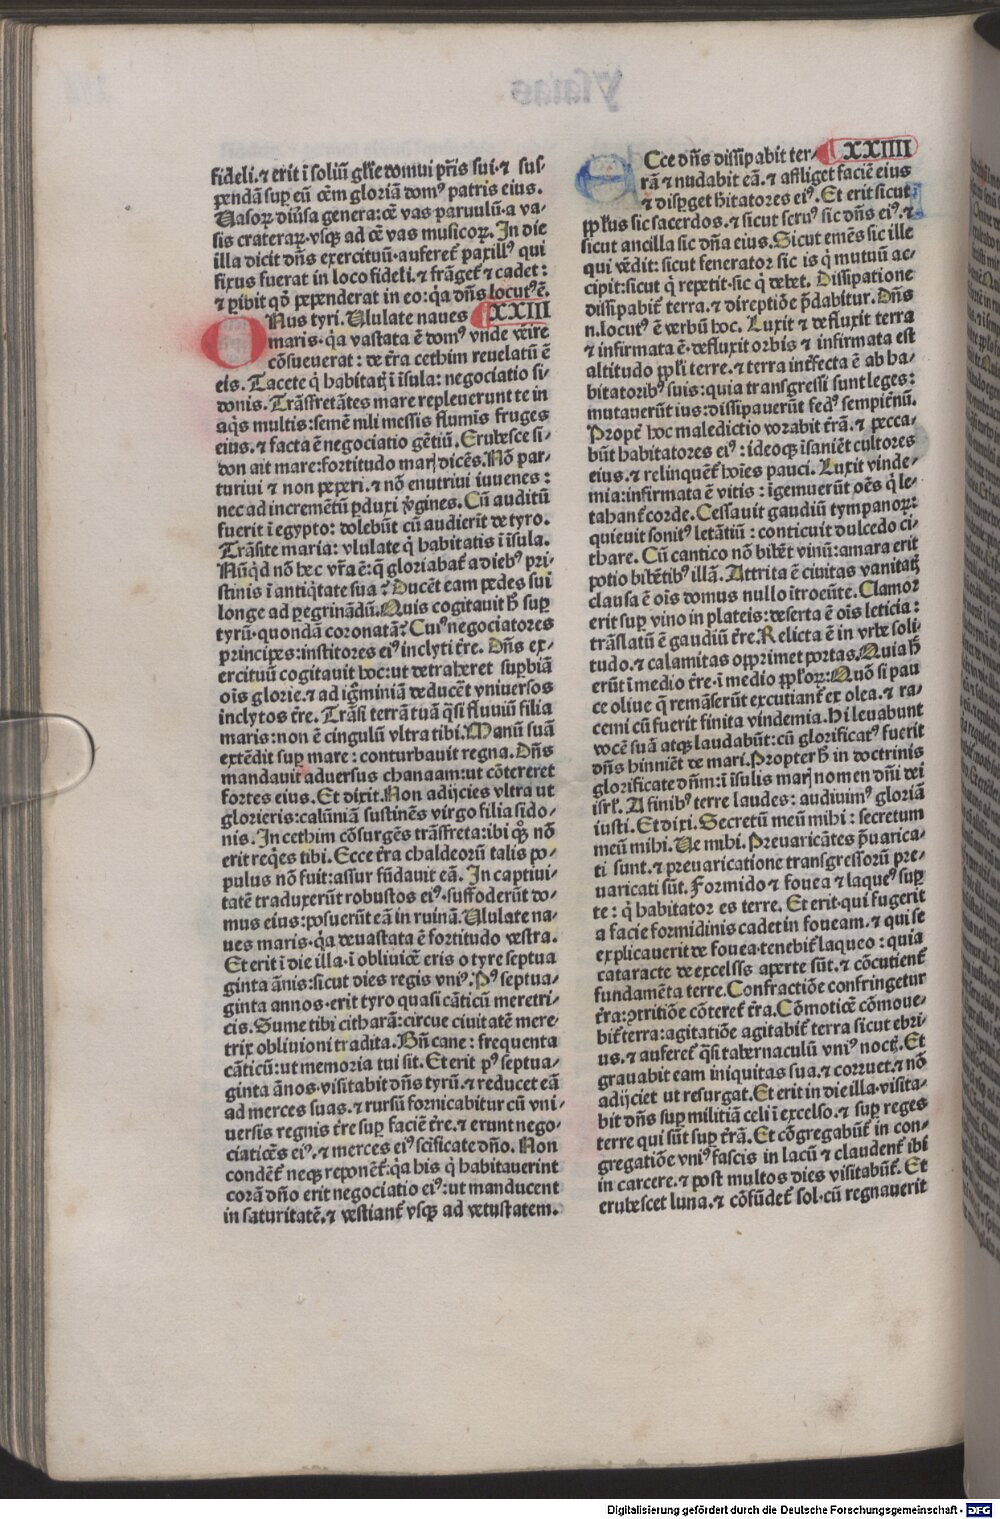 fideli. ⁊ erit ī soliū gl'ie domui p̄ris sui. ⁊ sus/
pendā suꝑ eū oēm gloriā domꝰ patris eius.
Uasoꝝ diūsa genera: oē vas paruulū. a va/
sis crateraꝝ. vsqꝫ ad oē vas musicoꝝ. In die
illa dicit dn̄s exercituū. auferet᷑ paxillꝰ qui
fixus fuerat in loco fideli. ⁊ frāget᷑ ⁊ cadet:
⁊ ꝑibit qð pependerat in eo: q̄a dn̄s locutꝰ ē.
ONus tyri. Ululate naues XXIII
maris. q̄a vastata ē domꝰ vnde vēire
cōsueuerat: de t̄ra cethim reuelatū ē
eis. Tacete q̄ habitatꝭ ī īsula: negociatio si/
donis. Trāsfretātes mare repleuerunt te in
aq̄s multis: semē nili messis flumīs fruges
eius. ⁊ facta ē negociatio gētiū. Erubesce si/
don ait mare: fortitudo marꝭ dicēs. Nō par/
turiui ⁊ non peperi. ⁊ nō enutriui iuuenes:
nec ad incremētū ꝑduxi v̄gines. Cū auditū
fuerit ī egypto: dolebūt cū audierīt de tyro.
Trāsite maria: vlulate q̄ habitatis ī īsula.
Nūqd nō hec vr̄a ē: q̄ gloriabat᷑ a diebꝰ pri/
stinis ī antiq̄tate sua? Ducēt eam pedes sui
longe ad ꝑegrinādū. Quis cogitauit h̄ suꝑ
tyrū. quondā coronatā? Cuiꝰ negociatores
principes: institores eiꝰ inclyti t̄re. Dn̄s ex/
ercituū cogitauit hoc: ut detraheret suꝑbiā
oīs glorie. ⁊ ad ig̊miniā deducēt vniuersos
inclytos t̄re. Trāsi terrā tuā q̄si fluuiū filia
maris: non ē cingulū vltra tibi. Manū suā
extēdit suꝑ mare: conturbauit regna. Dn̄s
mandauit aduersus chanaam: ut cōtereret
fortes eius. Et dixit. Non adijcies vltra ut
glorieris: calūniā sustinēs virgo filia sido/
nis. In cethim cōsurgēs trāsfreta: ibi qꝫ nō
erit req̄es tibi. Ecce t̄ra chaldeorū talis po/
pulus nō fuit: assur fūdauit eā. In captiui/
tatē traduxerūt robustos eiꝰ. suffoderūt do/
mus eius: posuerūt eā in ruinā. Ululate na/
ues maris. q̄a deuastata ē fortitudo vestra.
Et erit ī die illa. ī obliuiōe eris o tyre septua
ginta ānis: sicut dies regis vniꝰ. Pꝰ septua/
ginta annos. erit tyro quasi cāticū meretri/
cis. Sume tibi citharā: circue ciuitatē mere/
trix obliuioni tradita. Bn̄ cane: frequenta
cāticū: ut memoria tui sit. Et erit pꝰ septua/
ginta ānos. visitabit dn̄s tyrū. ⁊ reducet eā
ad merces suas. ⁊ rursū fornicabitur cū vni/
uersis regnis t̄re suꝑ faciē t̄re. ⁊ erunt nego/
ciatiōes eiꝰ. ⁊ merces eiꝰ sc̄ificate dño. Non
condēt᷑ neqꝫ reponēt᷑: q̄a his q̄ habitauerint
corā dño erit negociatio eiꝰ: ut manducent
in saturitatē. ⁊ vestiant᷑ vsqꝫ ad vetustatem.
ECce dn̄s dissipabit ter/ XXIIII
rā ⁊ nudabit eā. ⁊ affliget faciē eius
⁊ disꝑget hītatores eiꝰ. Et erit sicut
ppl'us sic sacerdos. ⁊ sicut seruꝰ sic dn̄s eiꝰ. ⁊
sicut ancilla sic dn̄a eius. Sicut emēs sic ille
qui vēdit: sicut fenerator sic is q̄ mutuū ac/
cipit: sicut q̄ repetit. sic q̄ debet. Dissipatione
dissipabit᷑ terra. ⁊ direptiōe p̄dabitur. Dn̄s
n. locutꝰ ē verbū hoc. Luxit ⁊ defluxit terra
⁊ infirmata ē. defluxit orbis ⁊ infirmata est
altitudo ppl'i terre. ⁊ terra īnterfecta ē ab ha/
bitatoribꝰ suis: quia transgressi sunt leges:
mutauerūt ius: dissipauerūt fedꝰ sempit̄nū.
Propt̄ hoc maledictio vorabit t̄rā. ⁊ pecca/
būt habitatores eiꝰ: ideoqꝫ īsaniēt cultores
eius. ⁊ relinquēt᷑ hoīes pauci. Luxit vinde/
mia: infirmata ē vitis: īgemuerūt oēs q̄ le/
tabant᷑ corde. Cessauit gaudiū tympanoꝝ:
quieuit sonitꝰ letātiū: conticuit dulcedo ci/
thare. Cū cantico nō bibēt vinū: amara erit
potio bibētibꝰ illā. Attrita ē ciuitas vanitatꝭ
clausa ē oīs domus nullo ītroeūte. Clamor
erit suꝑ vino in plateis: deserta ē oīs leticia:
trāslatū ē gaudiū t̄re. Relicta ē in vrbe soli/
tudo. ⁊ calamitas opprimet portas. Quia h̄
erūt ī medio t̄re. ī medio ppl'oꝝ: Quō si pau
ce oliue q̄ remāserūt excutiant᷑ ex olea. ⁊ ra/
cemi cū fuerit finita vindemia. Hi leuabunt
vocē suā atqꝫ laudabūt: cū glorificatꝰ fuerit
dn̄s hinniēt de mari. Propter h̄ in doctrinis
glorificate dn̄m: ī īsulis marꝭ nomen dñi dei
isrl'. A finibꝰ terre laudes: audiuimꝰ gloriā
iusti. Et dixi. Secretū meū mihi: secretum
meū mihi. Ue mihi. Preuaricātes p̄uarica/
ti sunt. ⁊ preuaricatione transgressorū pre/
uaricati sūt. Formido ⁊ fouea ⁊ laqueꝰ suꝑ
te: q̄ habitator es terre. Et erit. qui fugerit
a facie formidinis cadet in foueam. ⁊ qui se
explicauerit de fouea. tenebit᷑ laqueo: quia
cataracte de excelsis aperte sūt. ⁊ cōcutient᷑
fundamēta terre. Confractiōe confringetur
t̄ra: ↄtritiōe cōteret᷑ t̄ra. Cōmotiōe cōmoue/
bit᷑ terra: agitatiōe agitabit᷑ terra sicut ebri/
us. ⁊ auferet᷑ q̄si tabernaculū vniꝰ noctꝭ. Et
grauabit eam iniquitas sua. ⁊ corruet. ⁊ nō
adijciet ut resurgat. Et erit in die illa. visita/
bit dn̄s suꝑ militiā celi ī excelso. ⁊ suꝑ reges
terre qui sūt suꝑ t̄rā. Et cōgregabūt᷑ in con/
gregatiōe vniꝰ fascis in lacū ⁊ claudent᷑ ibi
in carcere. ⁊ post multos dies visitabūt᷑. Et
erubescet luna. ⁊ cōfūdet᷑ sol. cū regnauerit
Digitalisierung gefördert durch die Deutsche Forschungsgemeinschaft - DFG